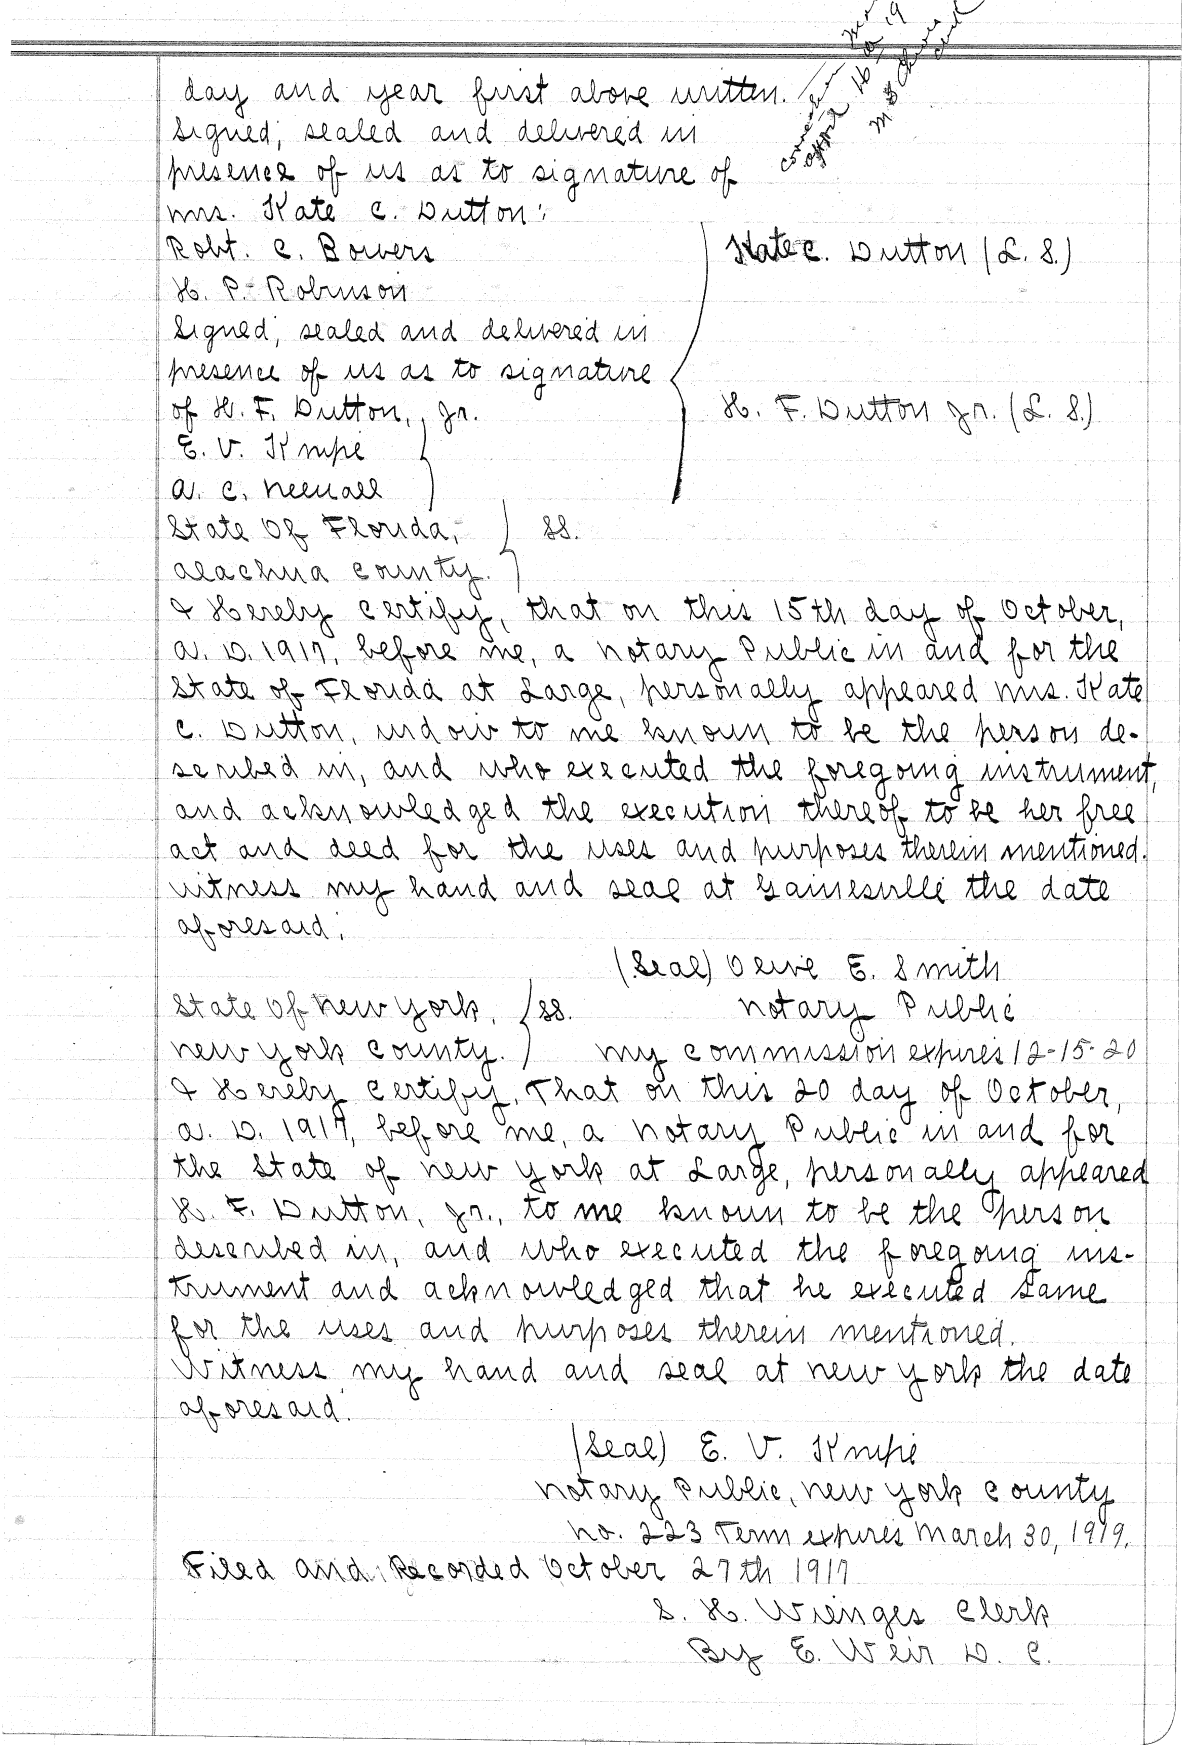 day and year first above written.
Signed, sealed and delivered in
presence of us as to signature of
Mrs. Kate C. Dutton:
Robt. C. Bowers
Kate C. Dutton (L. S.)
H. P. Robinson
Signed, sealed and delivered in
presence of us as to signature
of H. F. Dutton, Jr.
H. F. Dutton Jr. (L. S.)
E. V. Knipe
A. C. Newall
State Of Florida, SS.
Alachua County.
I Hereby Certify, that on this 15th day of October,
A. D. 1917, before me, a Notary Public in and for the
State of Florida at Large, personally appeared Mrs. Kate
C. Dutton, widow to me known to be the person de-
scribed in, and who executed the foregoing instrument,
and acknowledged the execution thereof to be her free
act and deed for the uses and purposes therein mentioned.
Witness my hand and seal at Gainesville the date
aforesaid.
(Seal) Olive E. Smith
State Of New York, SS. Notary Public
New York County. My commission expires 12-15-20
I Hereby Certify, That on this 20 day of October,
A. D. 1917, before me, a Notary Public in and for
the State of New York at Large, personally appeared
H. F. Dutton, Jr., to me known to be the person
described in, and who executed the foregoing ins-
trument and acknowledged that he executed same
for the uses and purposes therein mentioned.
Witness my hand and seal at New York the date
aforesaid.
(Seal) E. V. Knipe
Notary Public, New York County
No. 223 Term expires March 30, 1919.
Filed and Recorded October 27th 1917
S. H. Wienges Clerk
By E. Weir D. C.